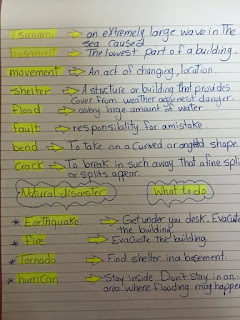 Tsunami → an extremely large wave in the
sea caused
basement → The lowest part of a building.
movement → An act of changing, location.
shelter → A structure or building that provides
cover from weather against danger.
flood → avery large amount of water
fault → responsibility for amistake
bend → To take on a Curved or angled shape.
Crack → To break in such away that a fine split
or splits appear.
Natural disaster What to do
* Earthquake → Get under you desk. Evacuate
the building.
* Fire → Evacuate the building.
* Tornado → Find shelter in a basement.
* hurrican → Stay inside. Don't stay in an
area where flooding may happen